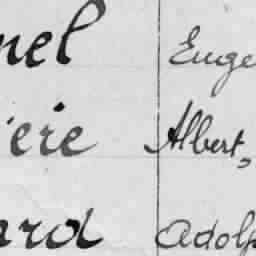 nel Euge
ieie Albert,
ard Adolp